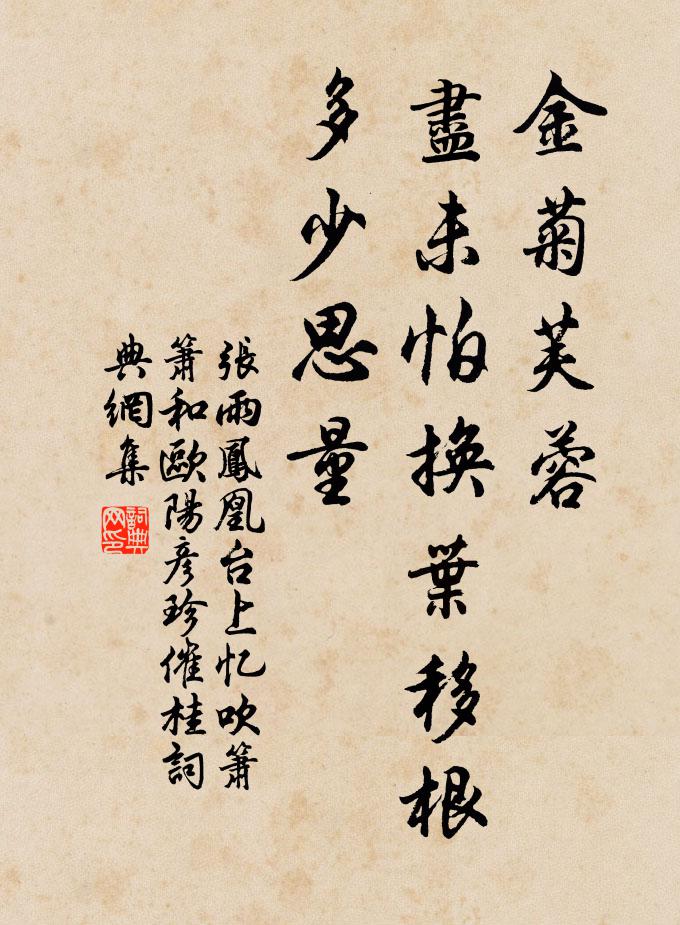 金菊芙蓉
盡未怕換葉移根
多少思量
張雨鳳凰台上忆吹簫
簫和歐陽彥珍催桂詞
典網集
詞典網印